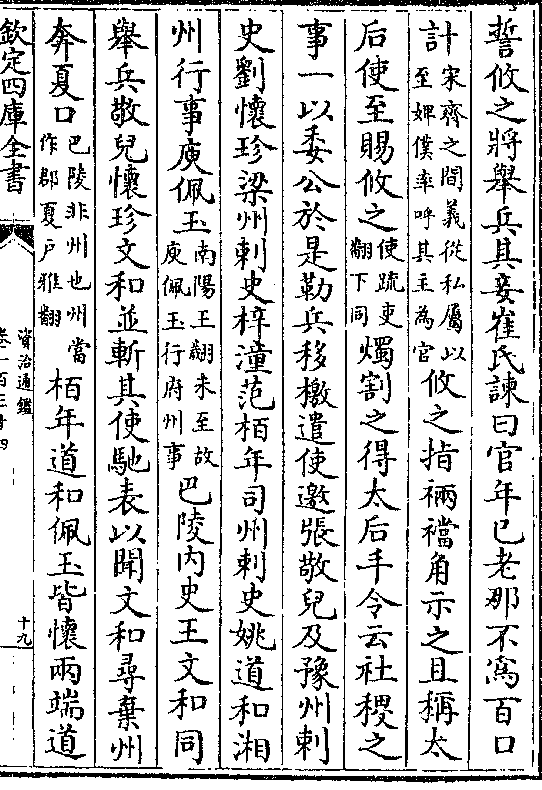 誓攸之將舉兵其妾崔氏諫曰官年已老那不爲百口
計宋齊之間義從私屬以至婢僕率呼其主為官攸之指裲襠角示之且稱太
后使至賜攸之使疏吏翻下同燭割之得太后手令云社稷之
事一以委公於是勒兵移檄遣使邀張敬兒及豫州刺
史劉懷珍梁州刺史梓潼范栢年司州刺史姚道和湘
州行事庾佩玉南陽王翽未至故庾佩玉行府州事巴陵内史王文和同
舉兵敬兒懷珍文和並斬其使馳表以聞文和尋棄州
奔夏口巴陵非州也州當作郡夏户雅翻栢年道和佩玉皆懷兩端道
欽定四庫全書
資治通鑑
卷一百三十四
十九